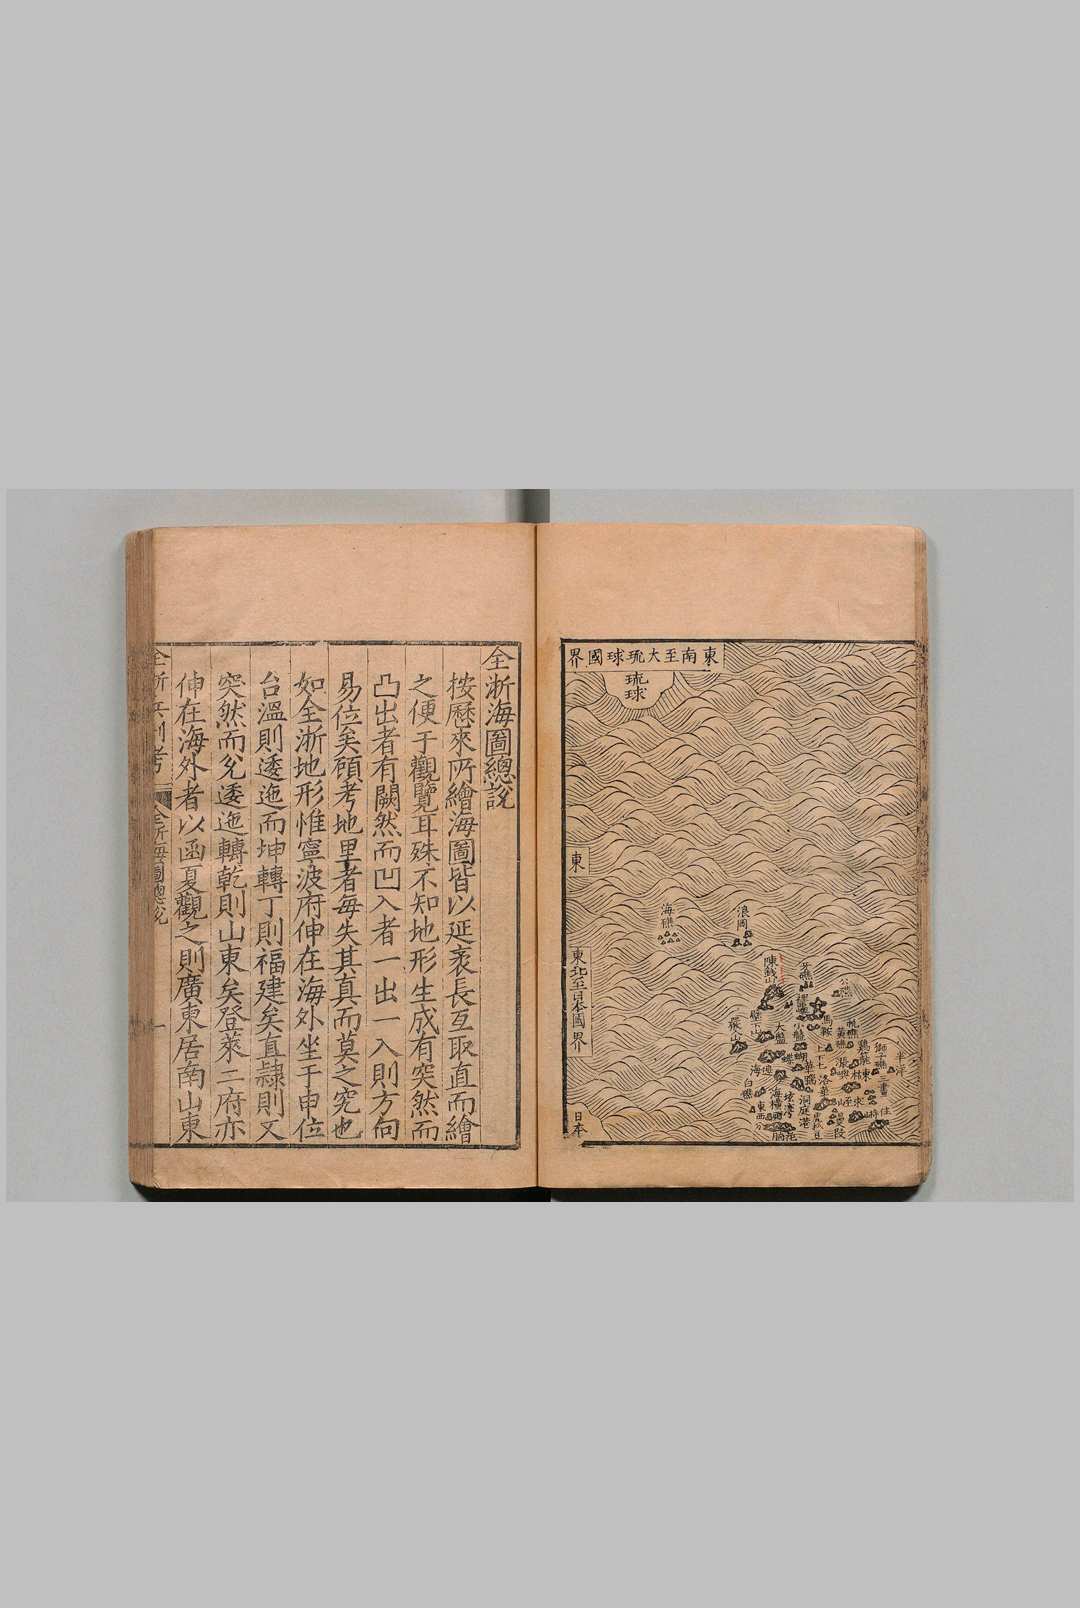 東南至大琉球國界
琉球
東
東北至日本國界
日本
海礁
浪岡
陳錢山
張山
壁山
大盤
小盤
馬鞍
白礁
半洋
洞庭港
全浙海圖總説
按歷來所繪海圖皆以延袤長亙取直而繪
之便于觀覽耳殊不知地形生成有突然而
凸出者有闕然而凹入者一出一入則方向
易位矣顧考地里者每失其真而莫之究也
如全浙地形惟寧波府伸在海外坐于申位
台溫則逶迤而坤轉丁則福建矣直隸則又
突然而兊逶迤轉乾則山東矣登萊二府亦
伸在海外者以函夏觀之則廣東居南山東
全浙兵制考
全浙海圖總説
一